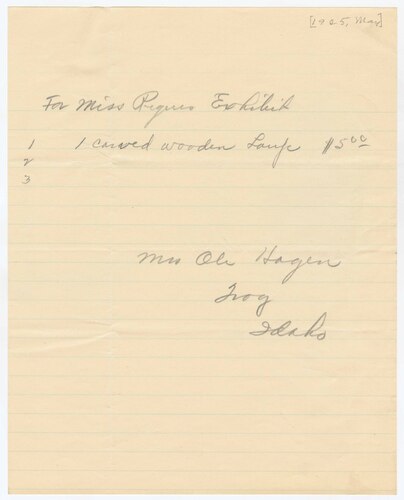 [1925, Mar]
For Miss Exhibit
1 1 carved wooden $5.00
2
3
Mrs Ole Hagen
Troy
Idaho